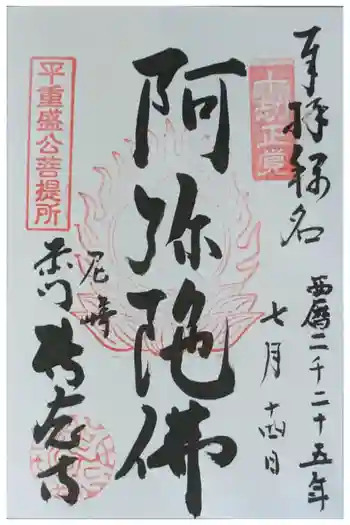 奉拝 称名
西暦二千二十五年
七月 十四日
十劫正覚
阿弥陀佛
平重盛公菩提所
尼崎